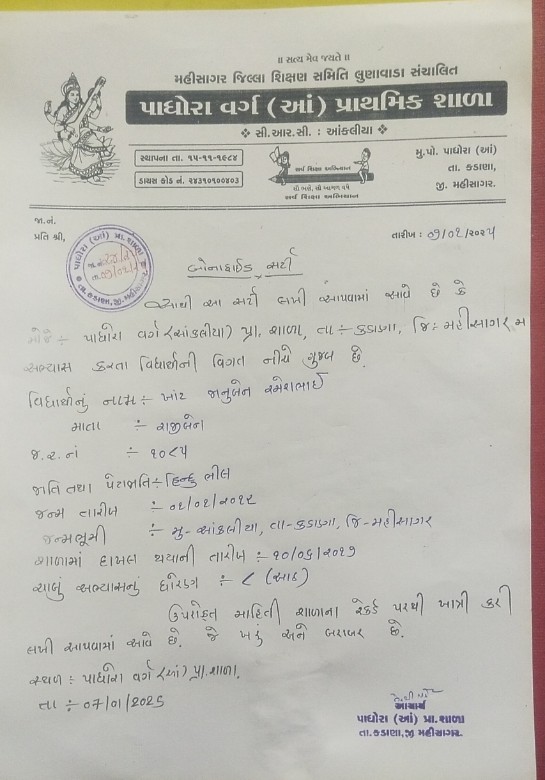 ॥ સત્ય મેવ જયતે ॥
મહીસાગર જિલ્લા શિક્ષણ સમિતિ લુણાવાડા સંચાલિત
પાધોરા વર્ગ (આં) પ્રાથમિક શાળા
❖ સી.આર.સી. : આંકલીયા ❖
સ્થાપના તા. ૧૫-૧૧-૧૯૮૪
ડાયસ કોડ નં. ૨૪૩૧૦૧૦૦૪૦૩
સર્વ શિક્ષા અભિયાન
સૌ ભણે, સૌ આગળ વધે
સર્વ શિક્ષા અભિયાન
મુ.પો. પાધોરા (આં)
તા. કડાણા,
જી. મહીસાગર.
જા.નં.
પ્રતિ શ્રી,
તારીખ :
પાધોરા (આં) પ્રા.શાળા
તા.કડાણા,જી.મહીસાગર
બોનાફાઈડ સર્ટી
આથી આ સર્ટી લખી આપવામાં આવે છે કે
મોજે ÷ પાધોરા વર્ગ (આંકલીયા) પ્રા. શાળા, તા ÷ કડાણા, જિ ÷ મહીસાગર મ
અભ્યાસ કરતા વિદ્યાર્થીની વિગત નીચે મુજબ છે.
વિદ્યાર્થીનું નામ ÷ ખાંટ જાનુબેન રમેશભાઈ
માતા ÷ રાજીબેન
જ.ર.નં ÷ ૧૦૮૫
જાતિ તથા પેટાજાતિ ÷ હિન્દુ ભીલ
જન્મ તારીખ ÷
જન્મભૂમી ÷ મુ- આંકલીયા, તા-કડાણા, જિ-મહીસાગર
શાળામાં દાખલ થયાની તારીખ ÷ ૧૦/૦૬/૨૦૧૭
ચાલું અભ્યાસનું ધોરણ ÷ ૮ (આઠ)
ઉપરોકત માહિતી શાળાના રેકર્ડ પરથી ખાત્રી કરી
લખી આપવામાં આવે છે. જે ખરું અને બરાબર છે.
સ્થળ : પાધોરા વર્ગ (આં) પ્રા. શાળા.
તા ÷ 07/01/2025
આચાર્ય
પાધોરા (આં) પ્રા.શાળા
તા.કડાણા,જી મહીસાગર.